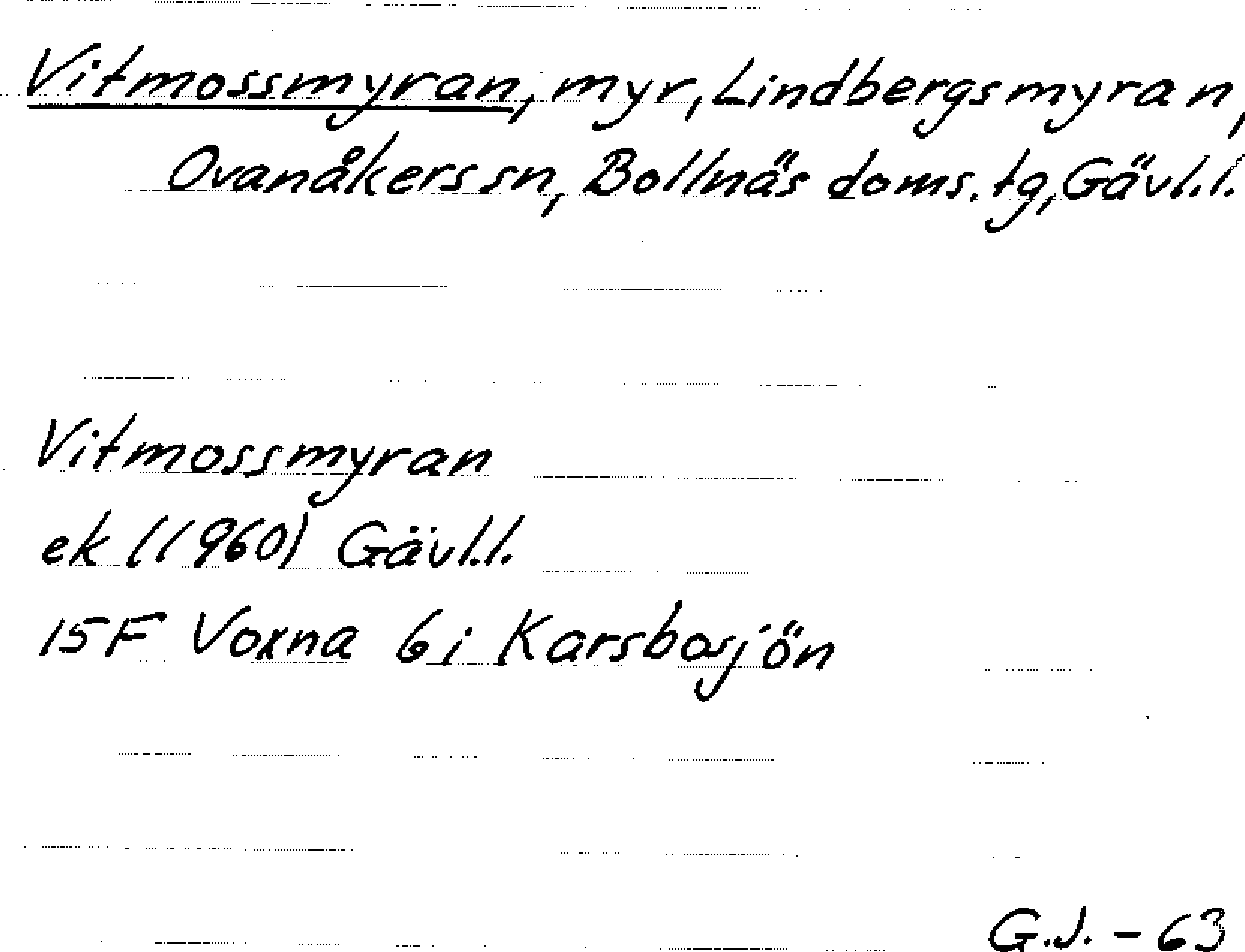 Vitmossmyran, myr, Lindbergsmyran,
Ovanåkers sn, Bollnäs doms. tg, Gävl.l.
Vitmossmyran
ek (1960) Gävl.l.
15F Voxna 6i Karsbosjön
G.J. - 63